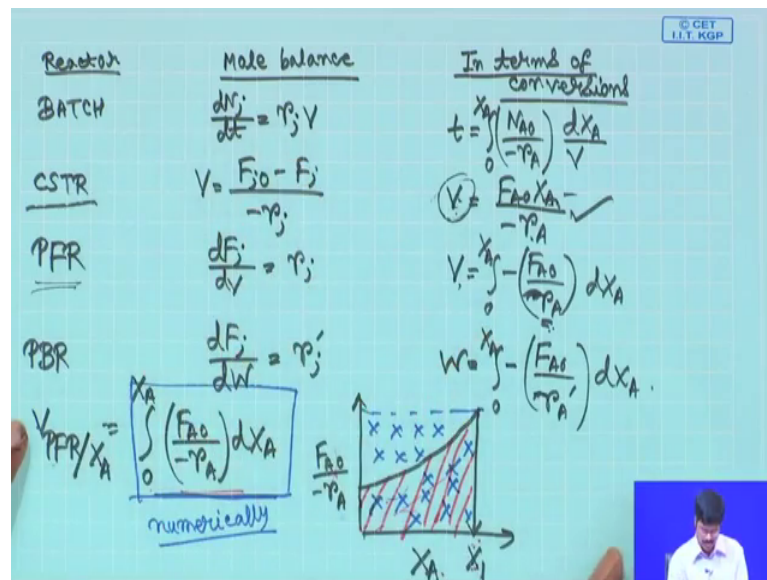 © CET
I.I.T. KGP
Reactor Mole balance In terms of conversions
BATCH dNj/dt = rj V t = ∫₀^XA (NA0/-rA) dXA/V
CSTR V = Fj0 - Fj / -rj V = FA0 XA / -rA ✓
PFR dFj/dV = rj V = ∫₀^XA -(FA0/-rA) dXA
PBR dFj/dW = rj' W = ∫₀^XA -(FA0/rA') dXA.
V PFR/XA = ∫₀^XA (FA0/-rA) dXA
numerically
FA0/-rA
XA X1